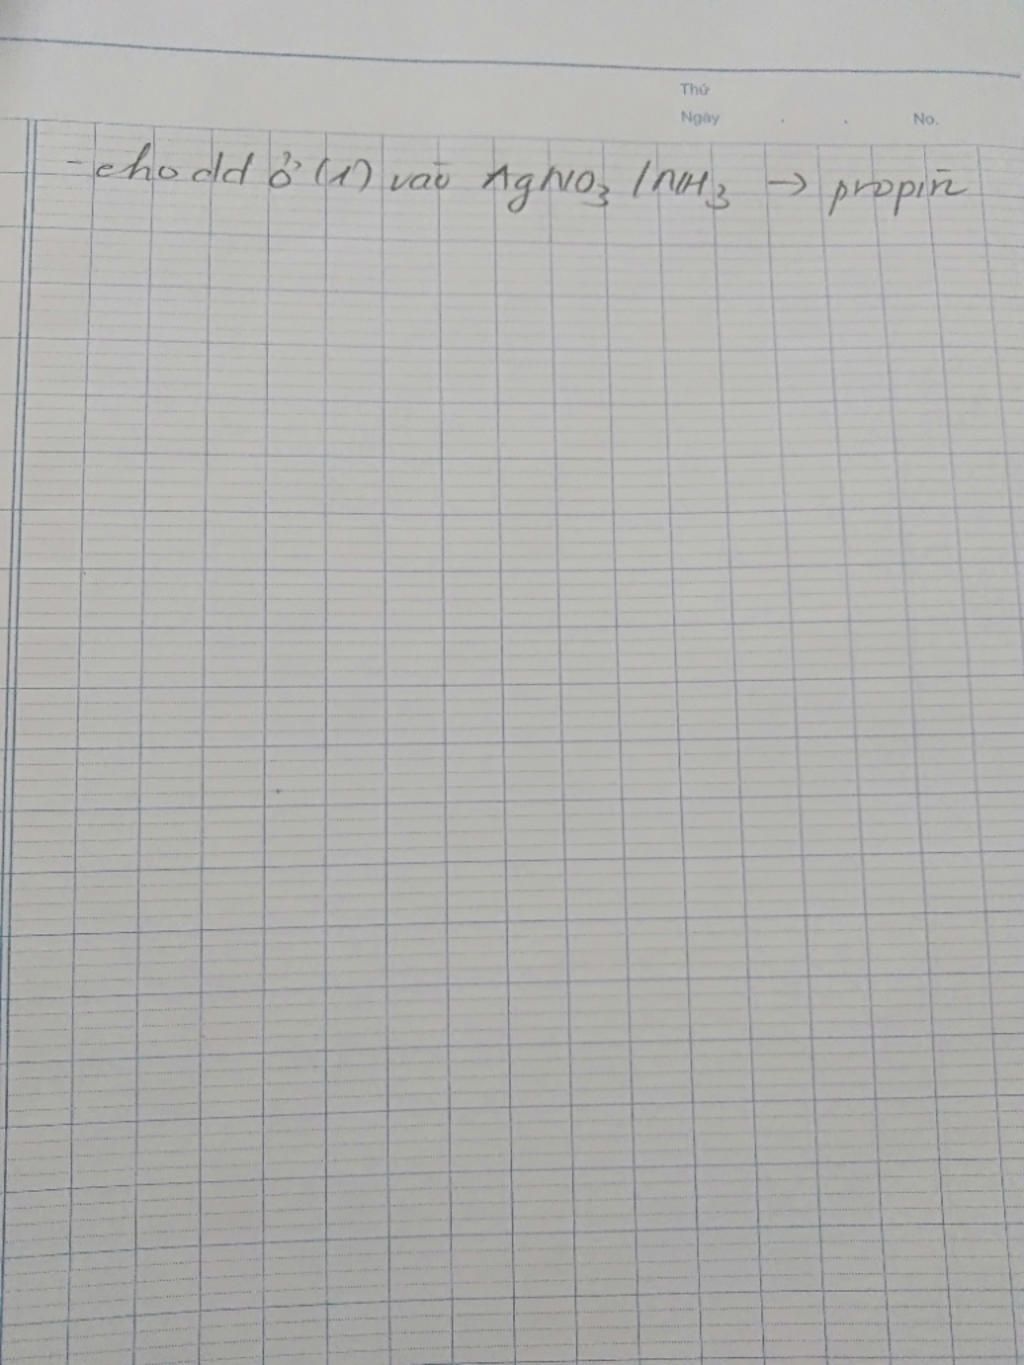 Thứ
Ngày . . No.
- cho dd ở (1) vào AgNO3 / NH3 → propin